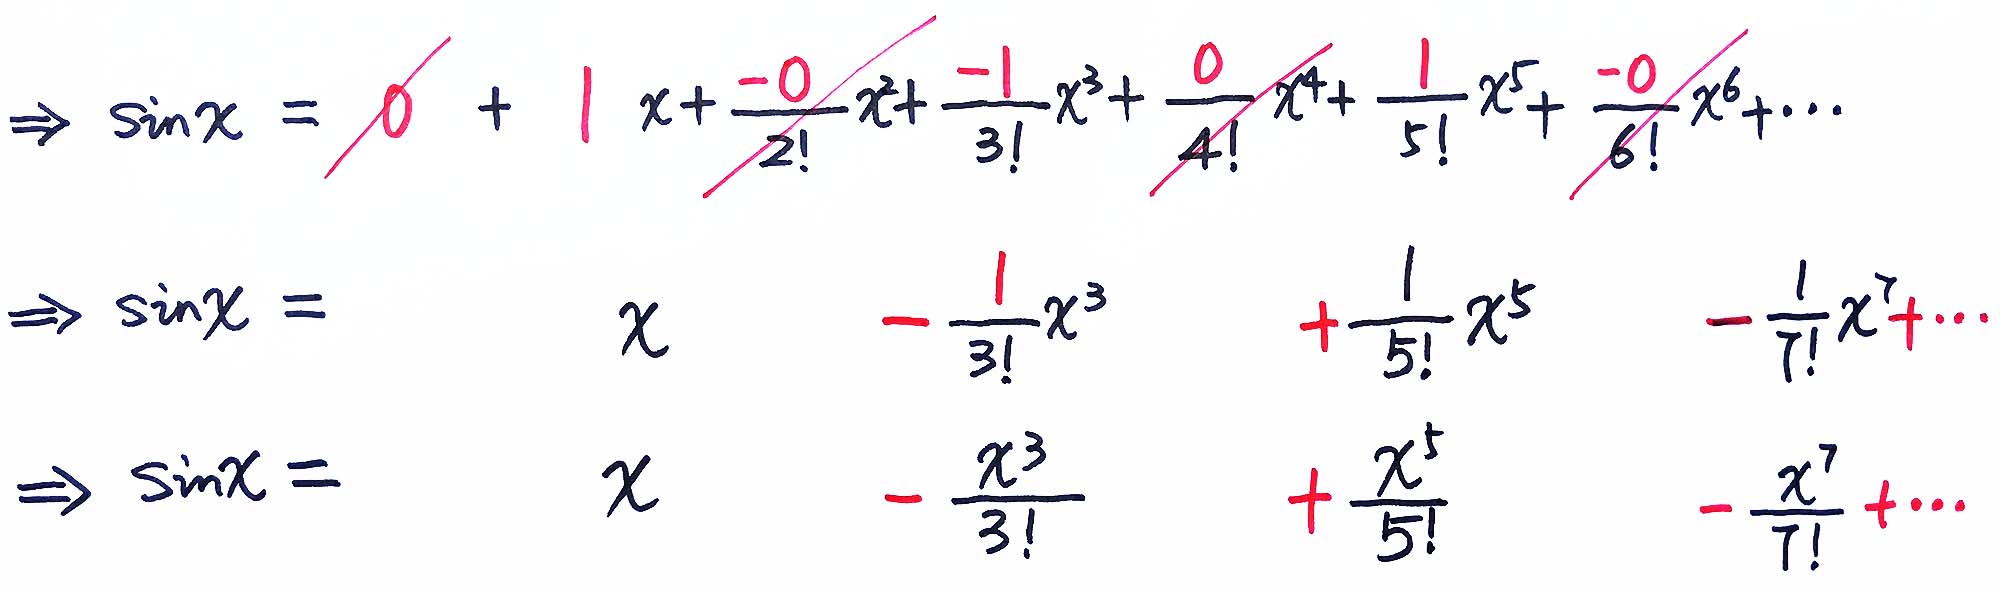 ⇒ sinx = 0 + 1 x + \frac{-0}{2!} x^2 + \frac{-1}{3!} x^3 + \frac{0}{4!} x^4 + \frac{1}{5!} x^5 + \frac{-0}{6!} x^6 + ⋯
⇒ sinx = x - \frac{1}{3!} x^3 + \frac{1}{5!} x^5 - \frac{1}{7!} x^7 + ⋯
⇒ sinx = x - \frac{x^3}{3!} + \frac{x^5}{5!} - \frac{x^7}{7!} + ⋯